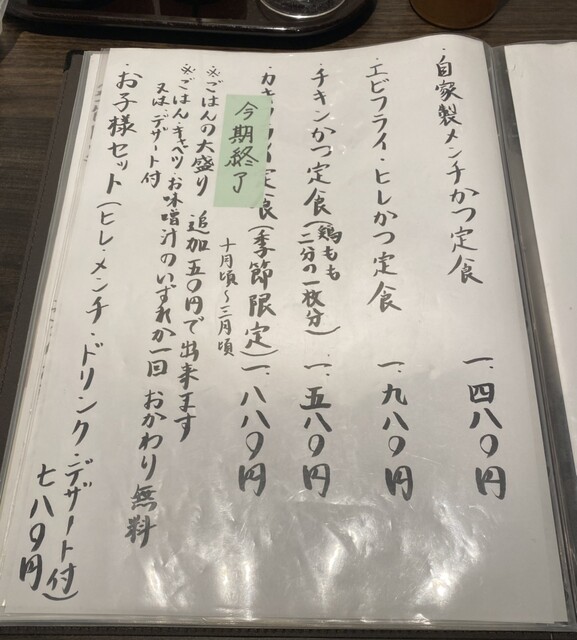 ・自家製メンチかつ定食 一、四八〇円
・エビフライ・ヒレかつ定食 一、九八〇円
・チキンかつ定食(鶏もも二分の一枚分) 一、五八〇円
・カキフライ定食(季節限定) 一、八八〇円
今期終了
十月頃〜三月頃
※ごはんの大盛り 追加五〇円で出来ます
※ごはん・キャベツ・お味噌汁のいずれか一回 おかわり無料
又は、デザート付
・お子様セット(ヒレ・メンチ・ドリンク・デザート付)
七八〇円